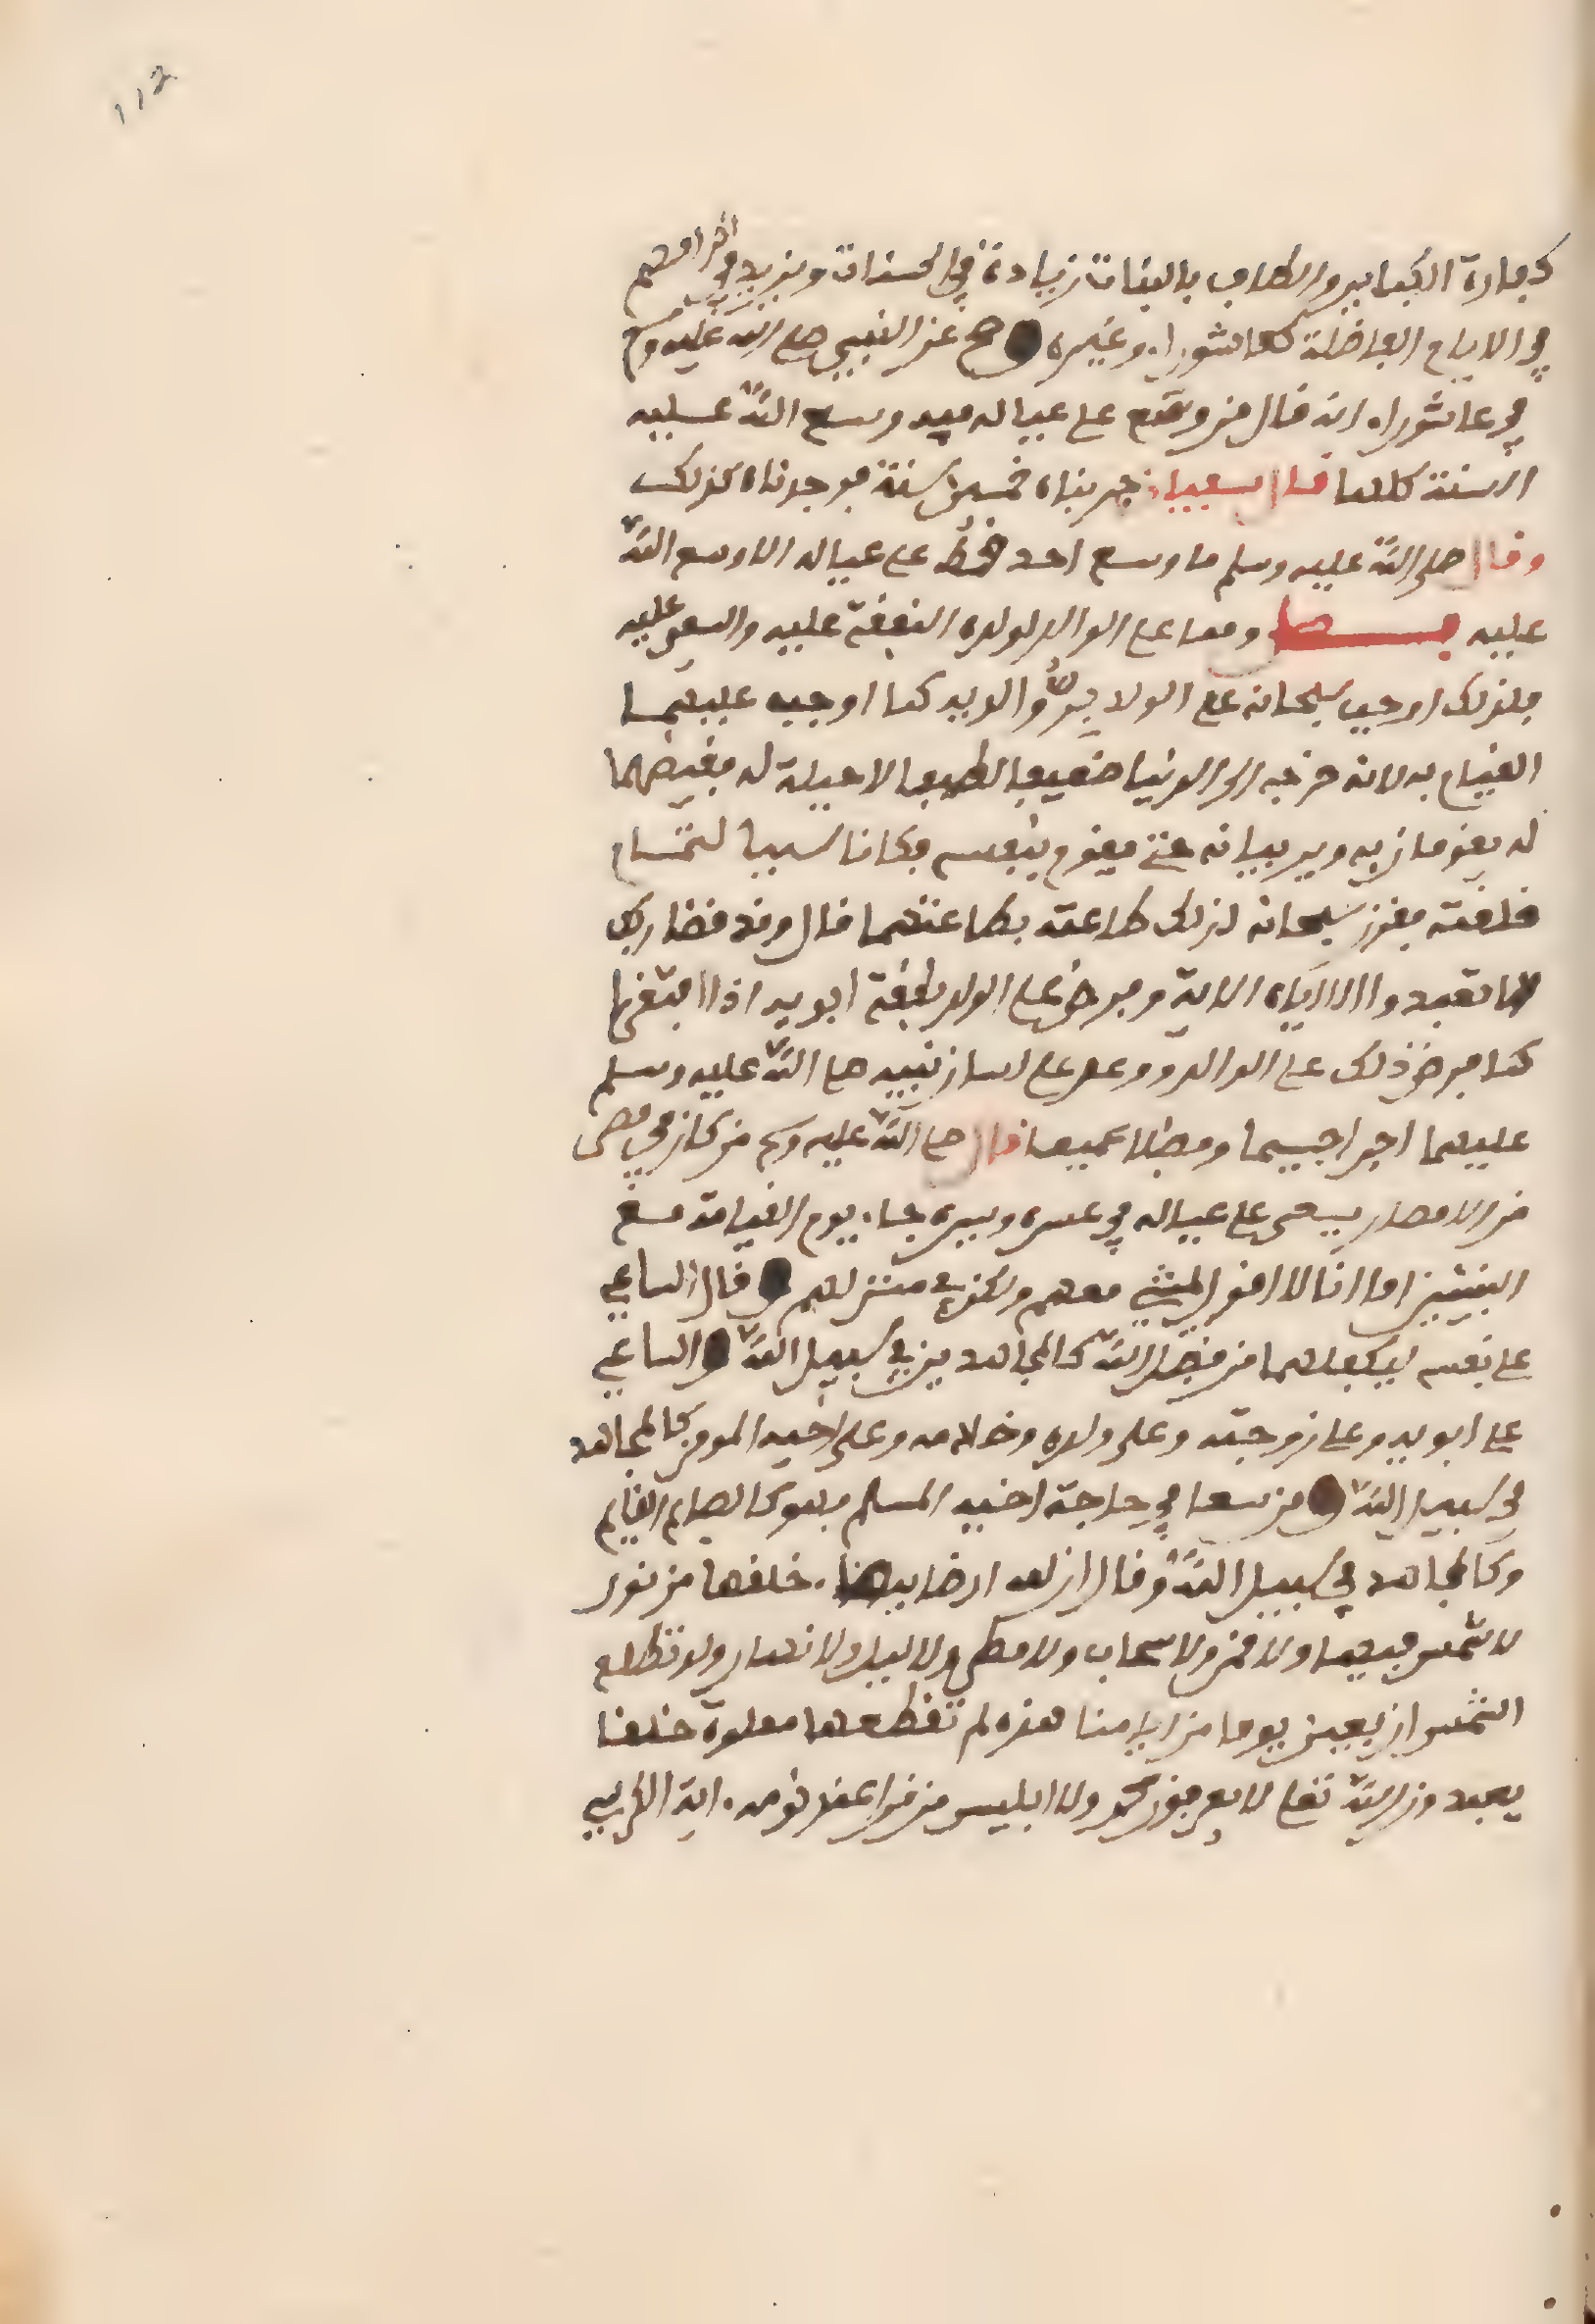 112
كفارة الكبائر والطاف بالبنات زيادة في الحسنات ويزيد في اكرامهم
في الايام الفاضلة كعاشوراء وغيره صح عن النبي صلى الله عليه وسلم
في عاشوراء انه قال من وسع على عياله فيه وسع الله عليه
السنة كلها قال سفيان جربناه خمسين سنة فوجدناه كذلك
وقال صلى الله عليه وسلم ما وسع احد قط على عياله الا وسع الله
عليه فصل ومما على الوالد لولده النفقة عليه والسعي عليه
فلذلك اوجب سبحانه على الولد بر والديه كما اوجب عليهما
القيام به لانه خرج الى الدنيا ضعيفا لطيفا لا حيلة له فقيضهما
له يقومان به ويربيانه حتى يقوم بنفسه فكانا سببا لتمام
خلقته فقرن سبحانه لذلك طاعته بطاعتهما قال وقضى ربك
الا تعبدوا الا اياه الاية وفرض على الولد نفقة ابويه اذا افتقرا
كما فرض ذلك على الوالد ووعد على لسان نبيه صلى الله عليه وسلم
عليهما اجرا جسيما وفضلا عميما قال صلى الله عليه وسلم من كان في مصر
من الامصار يسعى على عياله في عسره ويسره جاء يوم القيامة مع
النبيئين اما انا لا اقول يمشي معهم ولكن في منزلهم وقال الساعي
على نفسه ليكفلهما من فضل الله كالمجاهدين في سبيل الله والساعي
على ابويه وعلى زوجته وعلى ولده وخدامه وعلى اخيه المومن كالمجاهد
في سبيل الله ومن سعا في حاجة اخيه المسلم فهو كالصايم القايم
وكالمجاهد في سبيل الله وقال ان لله ارضا بيضاء خلقها من نور
لا شمس فيها ولا قمر ولا سحاب ولا مطر ولا ليل ولا نهار ولو تطلع
الشمس اربعين يوما من ايامنا هذه لم تقطعها مملوة خلقا
يعبدون الله تعلى لا يعرفون ولا ابليس من قرا عند نومه اية الكرسي